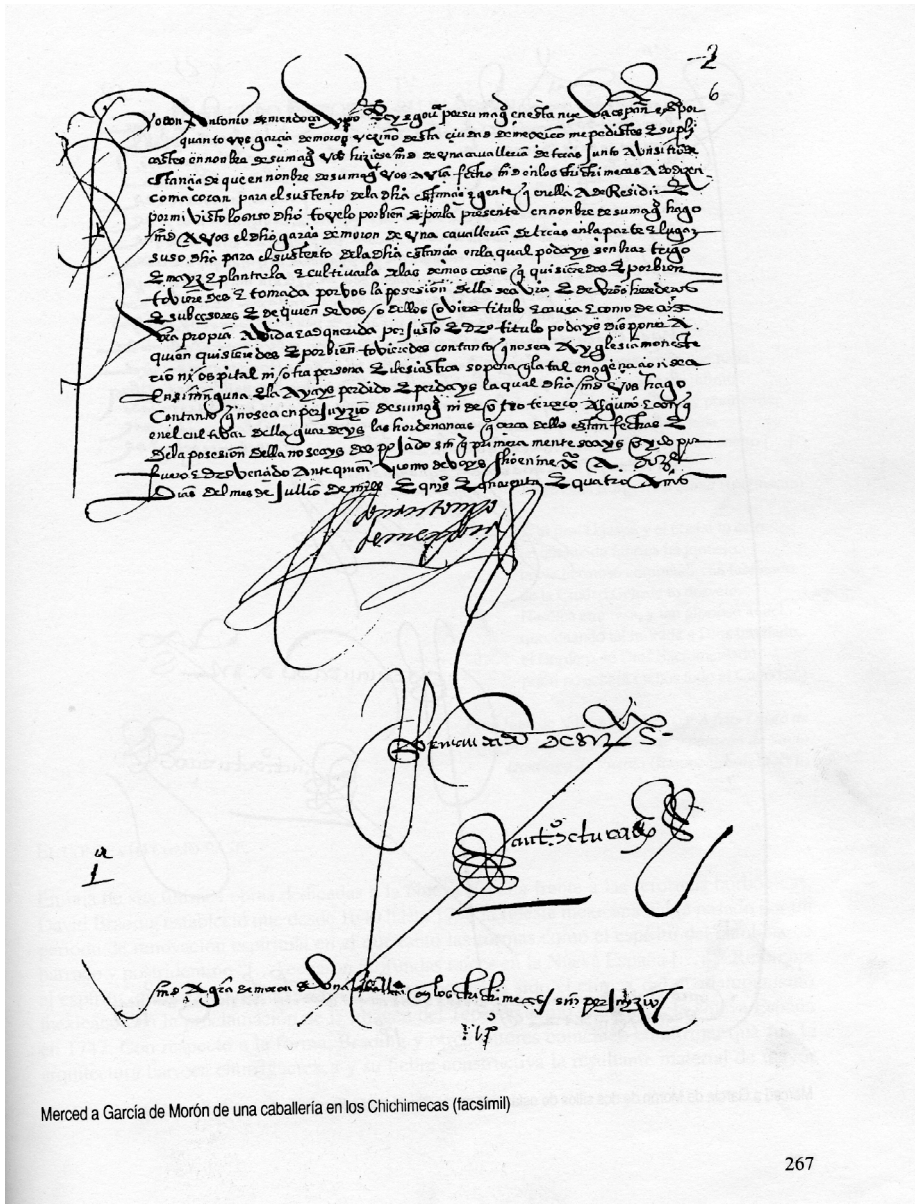 2
6
yo don Antonio de mendoça Visorrey e gouor por su magt en esta nueva españa etc por
quanto vos garçia de moron vezino desta çiudad de mexico me pedistes e supli
castes en nonbre de su magt vos hiziese md de vna cavalleria de tras junto a vn sitio de
estançia de que en nonbre de su magt vos avia fecho md en los chichimecas a do dizen
para el sustento de la dha estançia e gente q en ella a de Residir e
por mi visto lo suso dho tovelo por bien e por la presente en nonbre de su magt hago
md a vos el dho garçia de moron de vna cavalleria de tras en la parte e lugar
suso dho para el sustento de la dha estançia en la qual podays senbrar trigo
e mayz e plantarla e cultivarla de las demas cosas q quisieredes e por bien
tovieredes e tomada por vos la posesion della sea vra e de vros herederos
e subçesores e de quien de vos o dellos oviere titulo e causa e como de cosa
vra propia avida e adquerida por justo e dro titulo podays disponer a
quien quisieredes e por bien tovieredes con tanto q no sea a yglesia moneste
rio ni ospital ni otra persona eclesiastica so pena q la tal enagenaçion sea
en si ninguna e la ayays perdido e perdays la qual dha md vos hago
Con tanto q no sea en perjuyzio de su magt ni de otro terçero alguno e con q
en el cultivar della guardeys las hordenanças q çerca dello estan fechas e
de la posesion della no seays desposado sin q primeramente seays oydo y por
fuero e dro vençido ante quien e como devays fho en mexco a doze
dias del mes de jullio de mill e qnios e quarenta e quatro Años
don antonio
de mendoça
por mandado de su S
antº de turçios
1
md a gra de moron de vna cavalla en los chichimecas / sin perjuyzio
Merced a García de Morón de una caballería en los Chichimecas (facsímil)
267